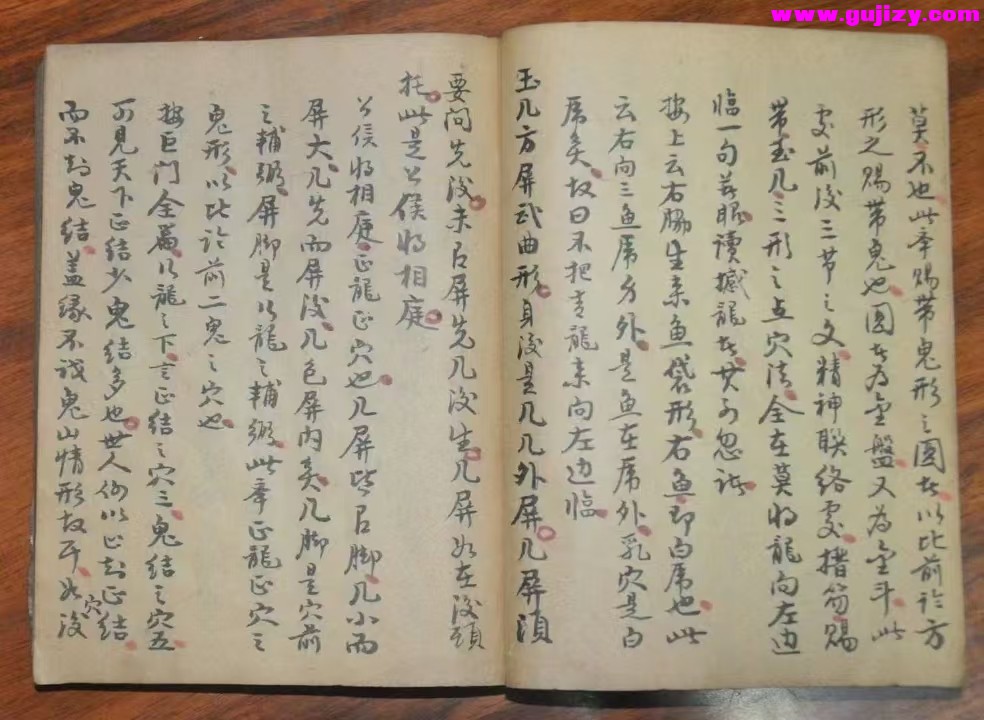 www.gujizy.com
莫不也此辛赐带鬼形之圆者以比前论方
形之赐带鬼也圆者为金盤又为金斗此
处前後三节之文精神联络处措笏赐
带玉几三形之点穴法全在莫将龍向左边
临一句若眼读撼龍者其可忽諸
按上云右脇生来鱼袋形右鱼即白虎也此
云右向三鱼虎方外是鱼在虎外乳穴是白
虎矣故曰不把青龍来向左边临
玉几方屏武曲形身後是几几外屏几屏湏
要问先後来有屏先几後生几屏如在後頭
托此是公侯将相庭
公侯将相庭正龍正穴也几屏皆有脚几小而
屏大几先而屏後几包屏内矣几脚是穴前
之輔弼屏脚是行龍之輔弼此辛正龍正穴之
鬼形以比论前二鬼之穴也
按巨门全篇行龍之下言正结之穴三鬼结之穴五
可見天下正结少鬼结多也世人倘以止知正结
而不知鬼结盖缘不识鬼山情形故耳如後
穴